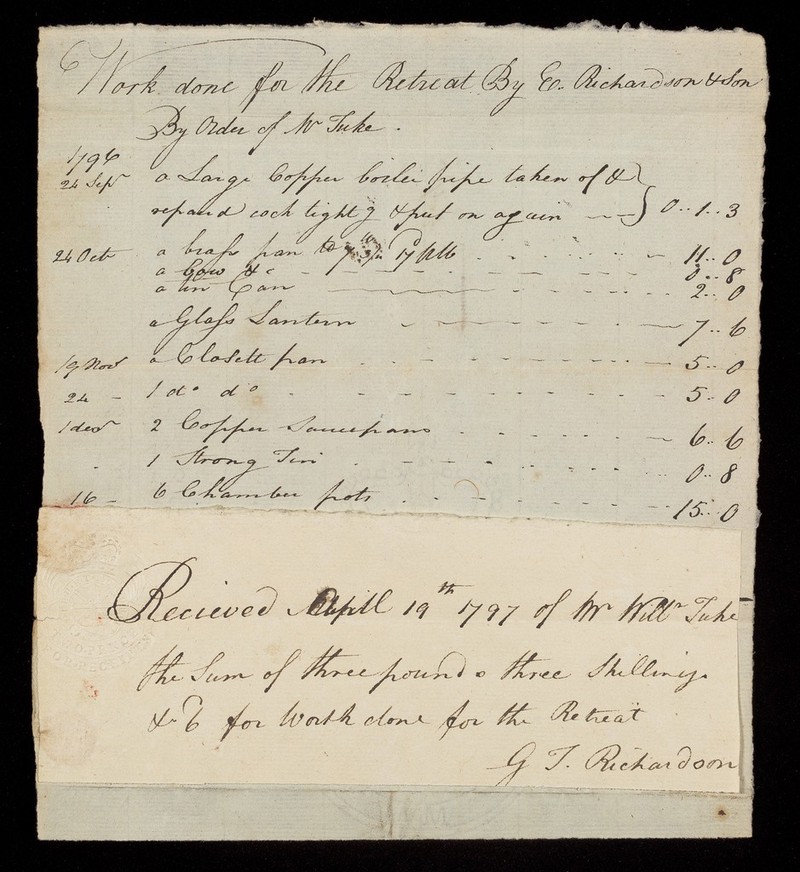 Work done for the Retreat By E. Richardson & Son
By Order of Mr Tuke.
1796
24 Sepr a Large Copper boiler pipe taken of &
repaird cock tight & put on again 0..1..3
24 Octr a brass pan 11..0
a & 0..8
a tin Can 2..0
a Glass Lantern 7..6
19 Novr a Closett pan 5..0
24 - 1 do do 5..0
1 decr 2 Copper Saucepans 6..6
1 Strong Tin 0..8
16 - 6 Chamber pots 15..0
Recieved Aprill 19th 1797 of Mr Willm Tuke
the Sum of three pounds three Shillings
& 6 for Work done for the Retreat
G T. Richardson